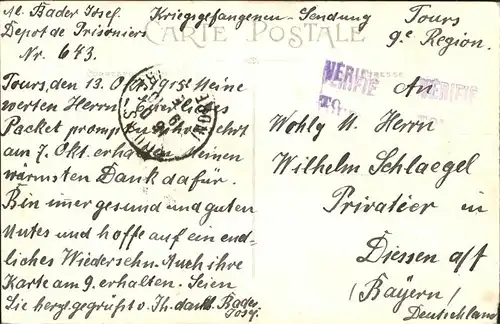 Al. Bader Josef. Kriegsgefangenen-Sendung Tours
Depot de Prisoniers 9e Region.
Nr. 643.
CARTE POSTALE
Tours, den 13. Okt. 1915. Meine
werten Herrn
Packet prompt
am 7. Okt. erhalten. Meinen
wärmsten Dank dafür.
Bin immer gesund und guten
Mutes und hoffe auf ein end-
liches Wiedersehn. Auch ihre
Karte am 9. erhalten. Seien
Sie herzl. gegrüßt v. Th. dankb. Bader
Josef.
VÉRIFIÉ
VÉRIFIÉ
An
Wohlg. H. Herrn
Wilhelm Schlaegel
Privatéer in
Diessen a/f
(Bayern)
Deutschland